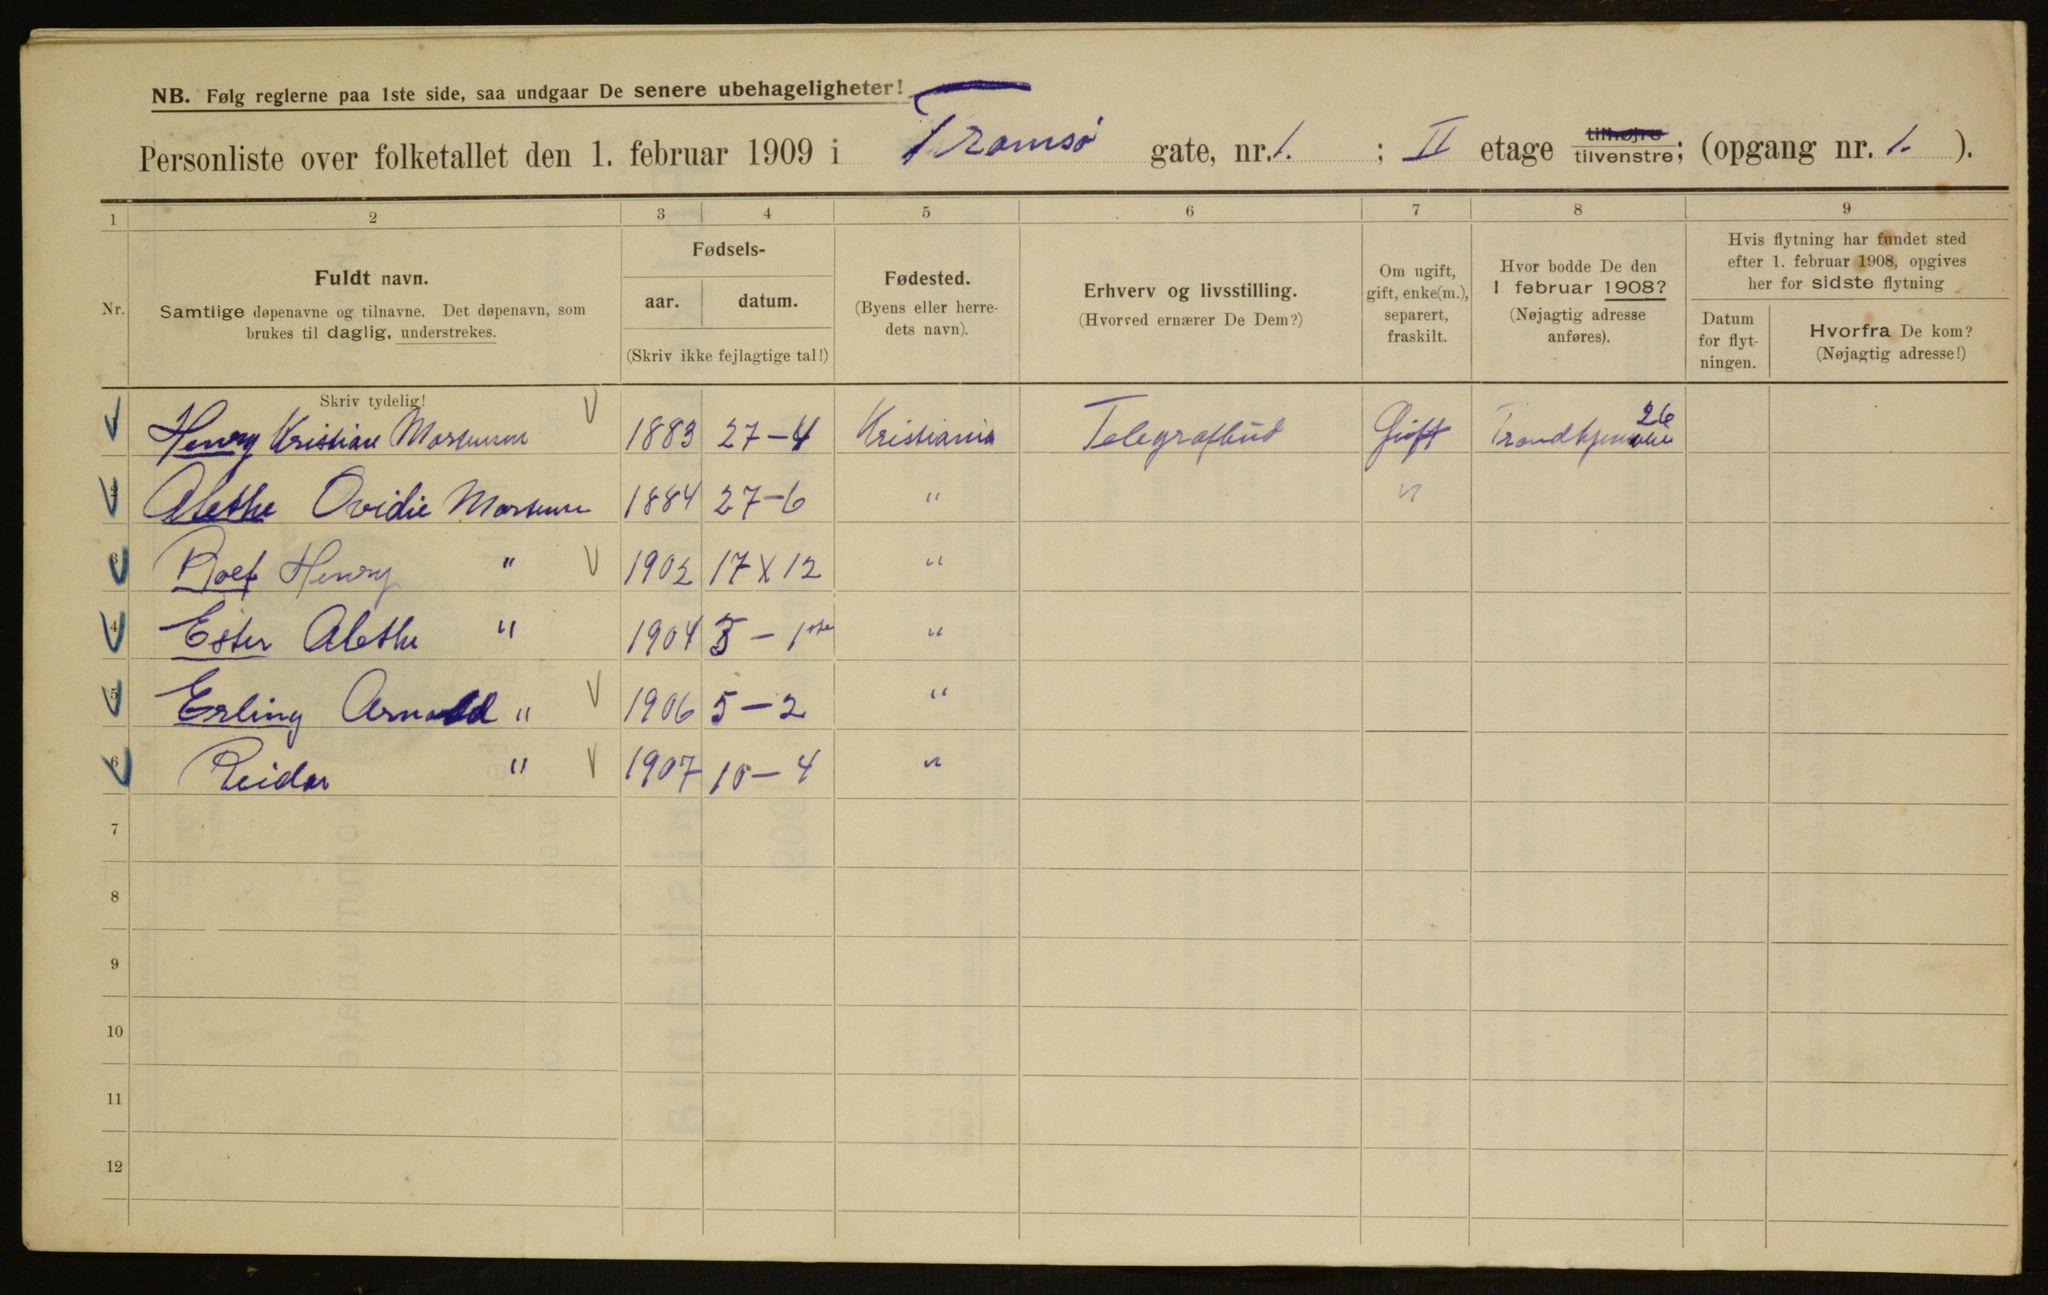 NB. Følg reglerne paa 1ste side, saa undgaar De senere ubehageligheter!
Personliste over folketallet den 1. februar 1909 i Tromsø gate, nr. 1. ; II etage tilhøjre tilvenstre; (opgang nr. 1. ).
1 2 3 4 5 6 7 8 9
Nr.
Fuldt navn.
Samtlige døpenavne og tilnavne. Det døpenavn, som
brukes til daglig, understrekes.
Skriv tydelig!
Fødsels-
aar. datum.
(Skriv ikke fejlagtige tal!)
Fødested.
(Byens eller herre-
dets navn).
Erhverv og livsstilling.
(Hvorved ernærer De Dem?)
Om ugift,
gift, enke(m.),
separert,
fraskilt.
Hvor bodde De den
1 februar 1908?
(Nøjagtig adresse
anføres).
Hvis flytning har fundet sted
efter 1. februar 1908, opgives
her for sidste flytning
Datum
for flyt-
ningen.
Hvorfra De kom?
(Nøjagtig adresse!)
Henry Kristian 1883 27-4 Kristiania Telegrafbud Gift 26
Alethe Ovidie 1884 27-6 " "
3 Henry " 1902 17 X 12 "
4 Ester Alethe " 1904 "
5 Erling Arnold " 1906 5-2 "
6 Reidar " 1907 10-4 "
7
8
9
10
11
12